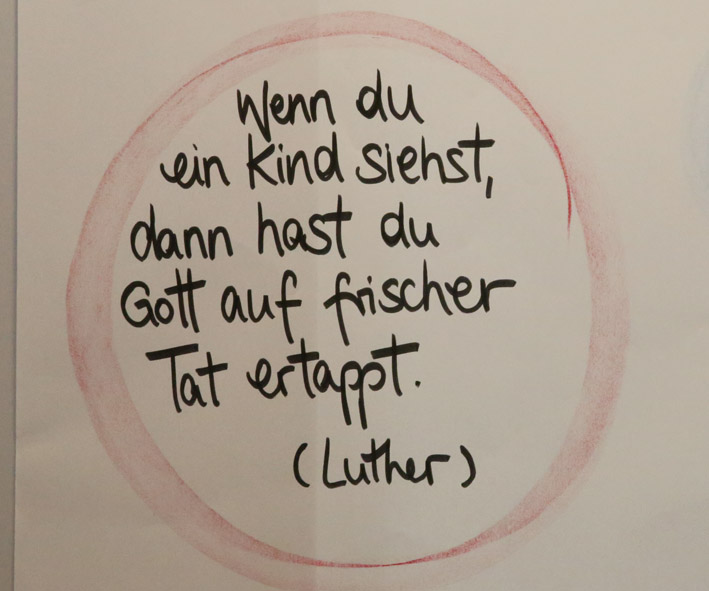 Wenn du
ein Kind siehst,
dann hast du
Gott auf frischer
Tat ertappt.
(Luther)